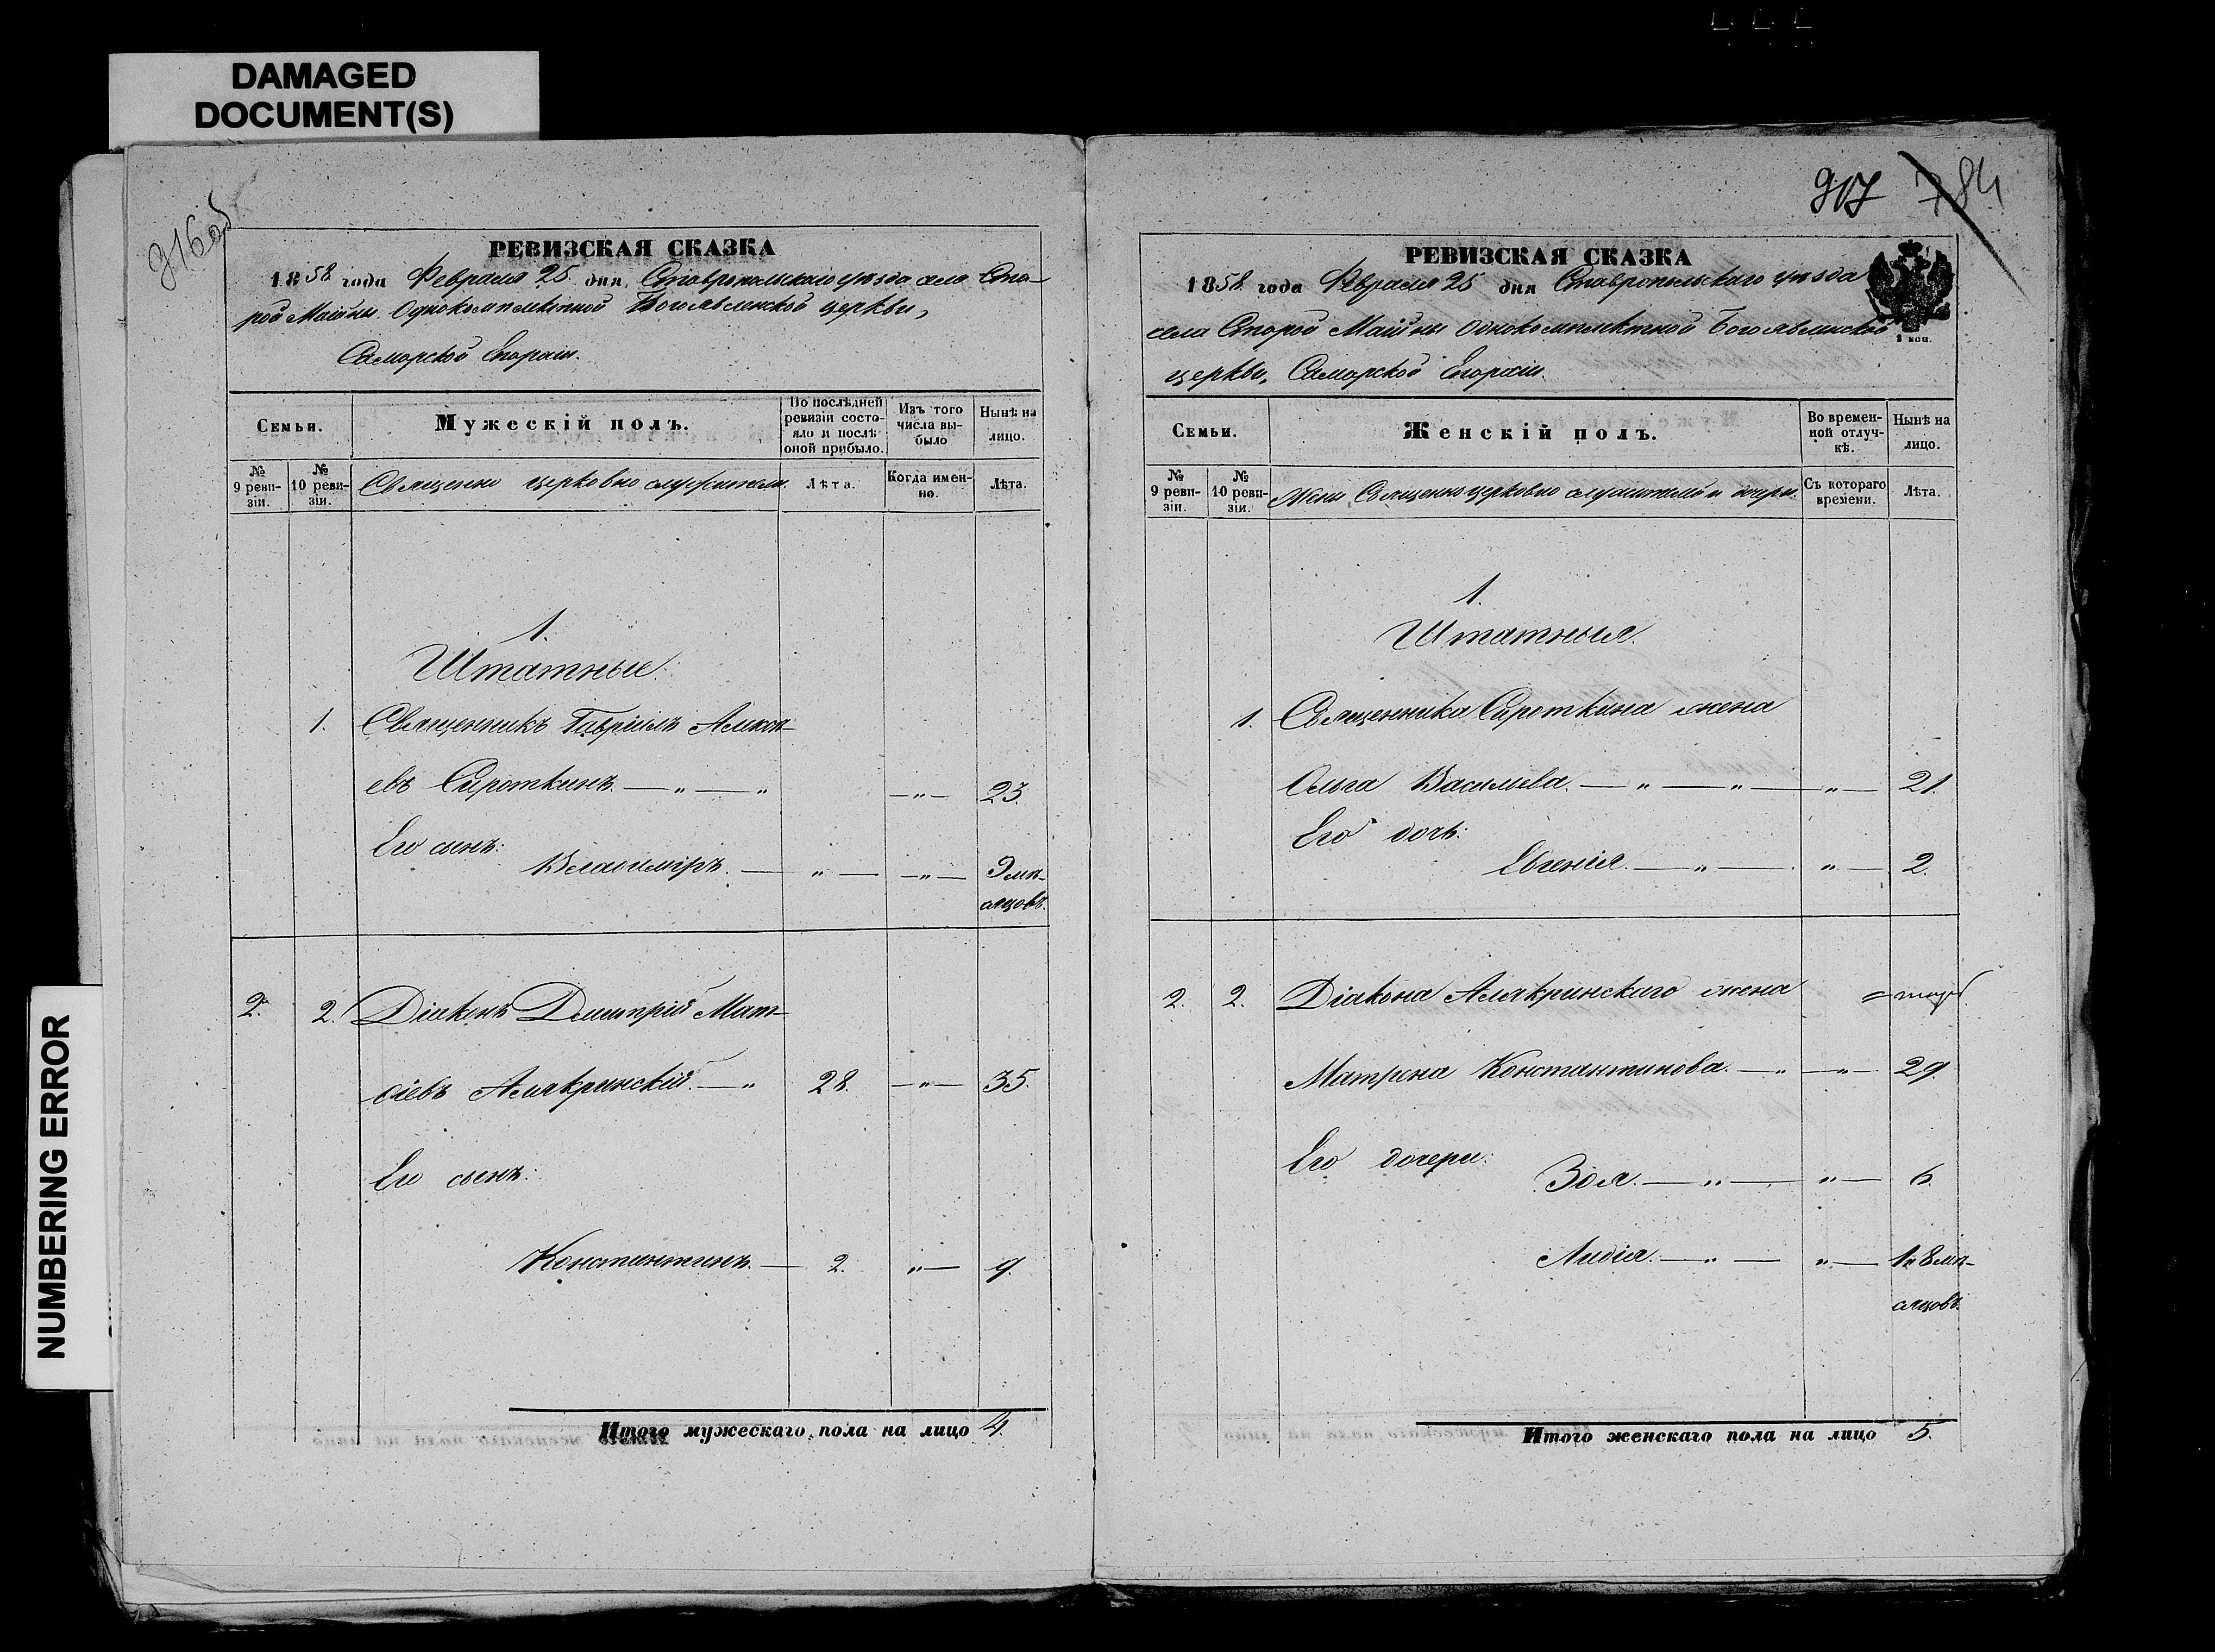 DAMAGED
DOCUMENT(S)
NUMBERING ERROR
916об
РЕВИЗСКАЯ СКАЗКА
1858 года Февраля 25 дня, Ставропольскаго уѣзда села Ста-
рой Майны Однокомплектной Богоявленской церкви,
Самарской Епархіи.
Семьи.
Мужескій полъ.
Во послѣдней
ревизіи состо-
яло и послѣ
оной прибыло.
Изъ того
числа вы-
было
Нынѣ на
лицо.
№
9 реви-
зіи.
№
10 реви-
зіи.
Священно церковно служители.
Лѣта.
Когда имен-
но.
Лѣта.
1.
Штатные:
1. Священникъ Гавріилъ Алексѣ-
евъ Сироткинъ. — „ — „ — „ — 23.
Его сынъ:
Владиміръ. — „ — — „ — 9 мѣ-
сяцовъ.
2. 2. Діаконъ Димитрій Мат-
ѳіевъ Алякринскій. — „ 28. — „ — 35.
Его сынъ:
Константинъ. — 2. „ — 9.
Итого мужескаго пола на лицо 4.
917 784
РЕВИЗСКАЯ СКАЗКА
1858 года Февраля 25 дня Ставропольскаго уѣзда
села Старой Майны Однокомплектной Богоявленской
2 коп.
церкви, Самарской Епархіи.
Семьи.
Женскій полъ.
Во времен-
ной отлуч-
кѣ.
Нынѣ на
лицо.
№
9 реви-
зіи.
№
10 реви-
зіи.
Жены Священноцерковно служителей и дочери.
Съ котораго
времени.
Лѣта.
1.
Штатныя.
1. Священника Сироткина жена
Ольга Васильева. — „ — „ — „ — 21.
Его дочь:
Евгенія. — „ — „ — 2.
2. 2. Діакона Алякринскаго жена
Матрона Константинова. — „ — „ — 29.
Его дочери:
Зоя. — „ — „ — 6.
Лидія. — „ — „ — 1 и 8 мѣ-
сяцовъ.
Итого женскаго пола на лицо 5.